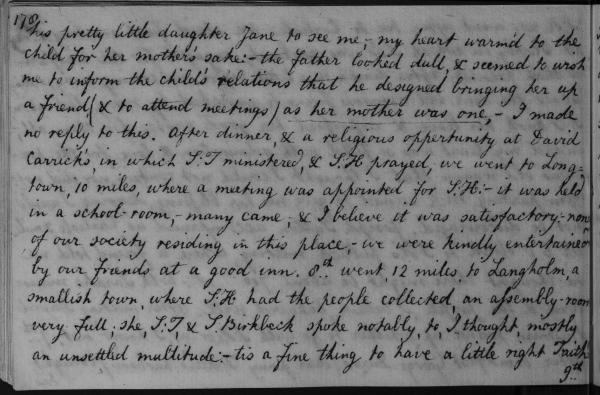 178
his pretty little daughter Jane to see me,- my heart warm'd to the
child for her mother's sake:- the father looked dull, & seemed to wish
me to inform the child's relations that he designed bringing her up
a friend (& to attend meetings) as her mother was one,- I made
no reply to this. After dinner, & a religious opportunity at David
Carrick's, in which S:T ministered, & S:H prayed, we went to Long=
town, 10 miles, where a meeting was appointed for S:H:- it was held
in a school-room,- many came, & I believe it was satisfactory;- none
of our society residing in this place,- we were kindly entertained
by our friends at a good inn. 8th went, 12 miles, to Langholm, a
smallish town, where S:H had the people collected, an assembly-room
very full: she, S:T, & S:Birkbeck spoke notably, to, I thought, mostly
an unsettled multitude:- tis a fine thing to have a little right Faith
9th